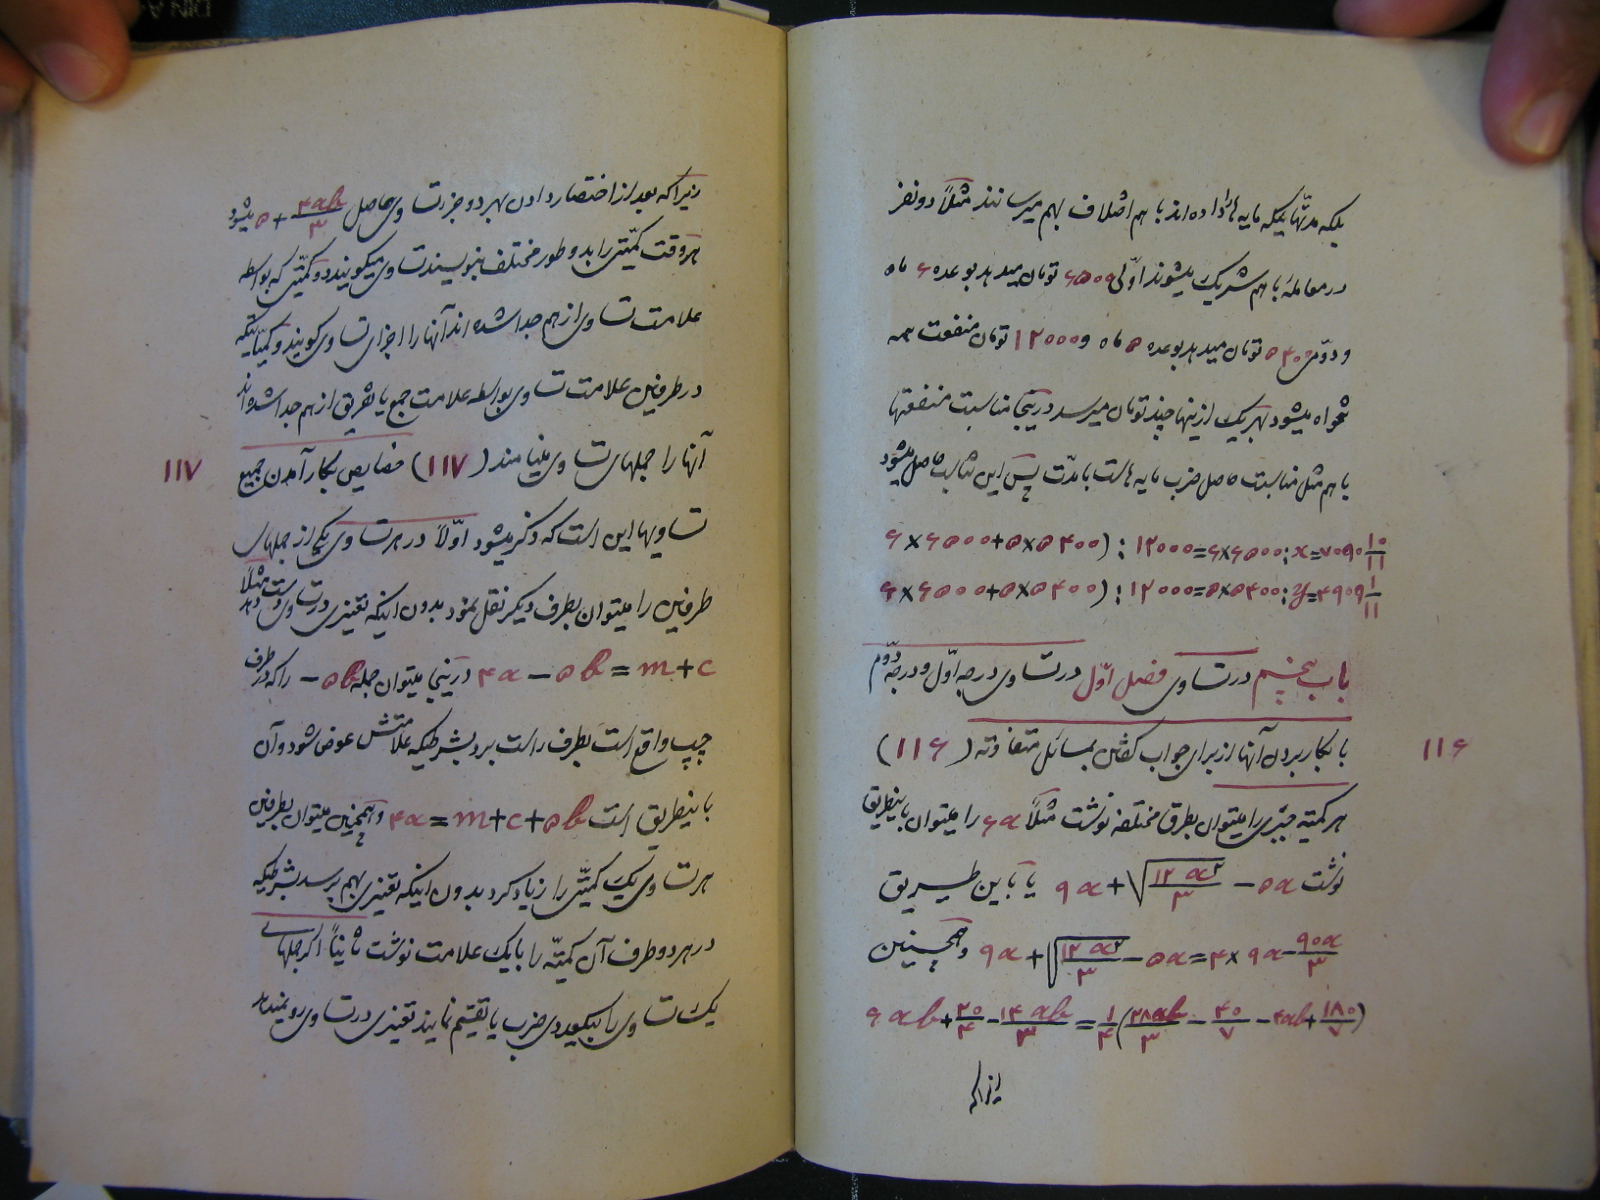 بلکه مدتهائیکه مایه‌ها را داده‌اند با هم اختلاف بهم میرسانند مثلاً دو نفر
در معامله با هم شریک میشوند اوّلی ۶۵۰۰ تومان میدهد بوعده ۶ ماه
و دوّمی ۵۴۰۰ تومان میدهد بوعده ۵ ماه و ۱۲۰۰۰ تومان منفعت همه
تنخواه میشود بهر یک ازینها چند تومان میرسد درینجا مناسبت منفعتها
با هم مثل مناسبت حاصل ضرب مایه هاست با مدّت پس این تناسب حاصل میشود
۶×۶۵۰۰+۵×۵۴۰۰) : ۱۲۰۰۰=۶×۶۵۰۰:x=۷۰۹۰ ۱۰/۱۱
۶×۶۵۰۰+۵×۵۴۰۰) : ۱۲۰۰۰=۵×۵۴۰۰:y=۴۹۰۹ ۱/۱۱
باب پنجم در تساوی فصل اوّل در تساوی درجه اوّل و درجه دوّم
با بکار بردن آنها از برای جواب گفتن بمسائل متفاوته (۱۱۶)
۱۱۶
هر کمیّه جبری را میتوان بطرق مختلفه نوشت مثلاً ۶a را میتوان باینطریق
نوشت ۹a+√۱۲a۲/۳ – ۵a یا باین طریق
۹a+√۱۲a۲/۳ – ۵a=۴×۹a–۹۰a/۳ و همچنین
۶ab+۲۰/۴–۱۴ab/۳=۱/۴(۲۸ab/۳–۴۰/۷–۴ab+۱۸۰/۷)
زیرا که
زیرا که بعد از اختصار دادن بهر دو جزء تساوی حاصل ۴ab/۳+۵ میشود
هر وقت کمیّتی را بدو طور مختلف بنویسند تساوی میگویند دو کمیّتی که بواسطه
علامت تساوی از هم جدا شده اند آنها را اجزای تساوی گویند و کمیّاتیکه
در طرفین علامت تساوی بواسطه علامت جمع یا تفریق از هم جدا شده‌اند
آنها را جملهای تساوی مینامند (۱۱۷) خصایص بکار آمدن جمیع
۱۱۷
تساویها این است که ذکر میشود اوّلاً در هر تساوی یکی از جملهای
طرفین را میتوان بطرف دیگر نقل نمود بدون اینکه تغییری در تساوی دست دهد مثلاً
۴a – ۵b = m+c درینجا میتوان جمله ۵b – را که در طرف
چپ واقع است بطرف راست برد بشرطیکه علامتش عوض شود و آن
باینطریق است ۴a=m+c+۵b و همچنین میتوان بطرفین
هر تساوی یک کمیّتی را زیاد کرد بدون اینکه تغییری بهم برسد بشرطیکه
در هر دو طرف آن کمیّه را با یک علامت نوشت ثانیاً اگر جملهای
یک تساوی را بیکعددی ضرب یا تقسیم نمایند تغییری در تساوی رو نمیدهد